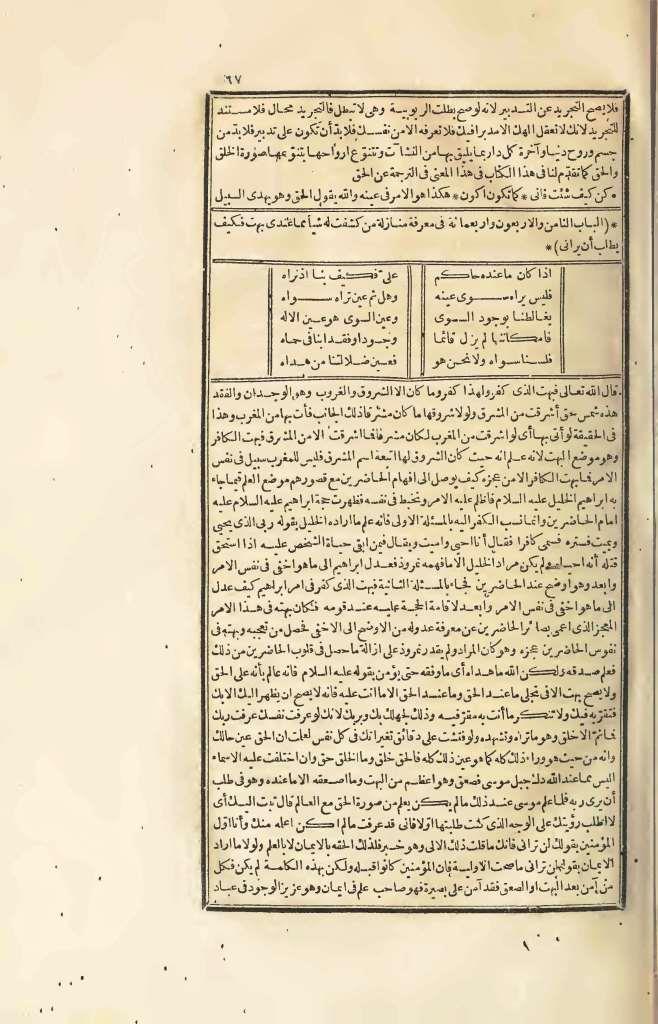 ٦٧
فلا يصح التجريد عن التدبير لانه لو صح بطلت الربوبية وهي لا تبطل فالتجريد محال فلا مستند
للتجريد لانك لا تعقل الهك الا مدبرا فيك فلا تعرفه الا من نفسك فلا بد أن تكون على تدبير فلا بد من
جسم وروح دنيا وآخرة كل دار بما يليق بها من النشآت وتتنوع ارواحها بتنوعها صورة الخلق
والحق كما تقدم لنا في هذا الكتاب في هذا المعنى في الترجمة عن الحق
* كن كيف شئت فاني * كما تكون اكون * هكذا هو الامر في عينه والله يقول الحق وهو يهدي السبيل
* (الباب الثامن والاربعون واربعمائة في معرفة منازلة من كشفت له شيأ مما عندي بهت فكيف
يطلب أن يراني) *
اذا كان ما عنده حاكم على فكيف بنا اذ نراه
فليس يراه سوى عينه وهل ثم عين تراه سواه
يغالطنا بوجود السوى وعين السوى هو عين الاله
فامكاننا لم يزل قائما وجودا وفقدا بنا في حماه
فلسنا سواه ولا نحن هو فعين ضلالتنا من هداه
قال الله تعالى فبهت الذي كفر ولهذا كفر وما كان الا الشروق والغروب وهو الوجدان والفقد
هذه شمس حق أشرقت من المشرق ولولا شروقها ما كان مشرقا فذلك الجانب فأت بها من المغرب وهذا
في الحقيقة لو أتى بها أى لو اشرقت من المغرب لكان مشرقا فما اشرقت الا من المشرق فبهت الكافر
وهو موضع البهت لانه علم انه حيث كان الشروق لها اتبعه اسم المشرق فليس للمغرب سبيل في نفس
الامر فما بهت الكافر الا من عجزه كيف يوصل الى افهام الحاضرين مع قصورهم موضع العلم فيما جاء
به ابراهيم الخليل عليه السلام فاظلم عليه الامر وتخبط في نفسه فظهرت حجة ابراهيم عليه السلام عليه
امام الحاضرين وانما نسب الكفر اليه بالمسئلة الاولى فانه علم ما اراده الخليل بقوله ربى الذى يحيى
ويميت فستره فسمى كافرا فقال أنا احيى واميت ويقال فيمن ابقى حياة الشخص عليه اذا استحق
قتله أنه احياه ولم يكن مراد الخليل الا ما فهمه نمروذ فعدل ابراهيم الى ما هو اخفى في نفس الامر
وابعد وهو اوضح عند الحاضرين فجاء بالمسئلة الثانية فبهت الذى كفر في امر ابراهيم كيف عدل
الى ما هو اخفى في نفس الامر وابعد لاقامة الحجة عليه عند قومه فكان بهته في هذا الامر
المعجز الذى اعمى بصائر الحاضرين عن معرفة عدوله من الاوضح الى الاخفى فحصل من تعجبه وبهته في
نفوس الحاضرين عجزه وهو كان المراد ولم يقدر نمروذ على ازالة ما حصل في قلوب الحاضرين من ذلك
فعلم صدقه ولكن الله ما هداه أى ما وفقه حتى يؤمن بقوله عليه السلام فانه عالم بأنه على الحق
ولا يصح بهت الا في تجلى ما عند الحق وما عند الحق الا ما انت عليه فانه لا يصح ان يظهر اليك الا بك
فتقر به فيك ولا تنكر ما أنت به مقر فيه وذلك لجهلك بك وبربك لانك لو عرفت نفسك عرفت ربك
فما ثم الا خلق وهو ما تراه وتشهده ولو فتشت على دقائق تغيراتك في كل نفس لعلمت ان الحق عين حالك
وانه من حيث هو وراء ذلك كله كما هو عين ذلك كله فالحق خلق وما الخلق حق وان اختلفت عليه الاسماء
اليس مما عند الله دك جبل موسى فصعق وهو اعظم من البهت وما اصعقه الا ما عنده وهو في طلب
أن يرى ربه فلما علم موسى عند ذلك ما لم يكن يعلم من صورة الحق مع العالم قال تبت اليك أى
لا اطلب رؤيتك على الوجه الذى كنت طلبتها اولا فانى قد عرفت ما لم اكن اعلمه منك وأنا اول
المؤمنين بقولك لن ترانى فانك ما قلت ذلك الا لى وهو خبر فلذلك الحقه بالايمان لا بالعلم ولولا ما اراد
الايمان بقوله لن ترانى ما صحت الاولية فان المؤمنين كانوا قبله ولكن بهذه الكلمة لم يكن فكل
من آمن بعد البهت او الصعق فقد آمن على بصيرة فهو صاحب علم في ايمان وهو عزيز الوجود في عباد